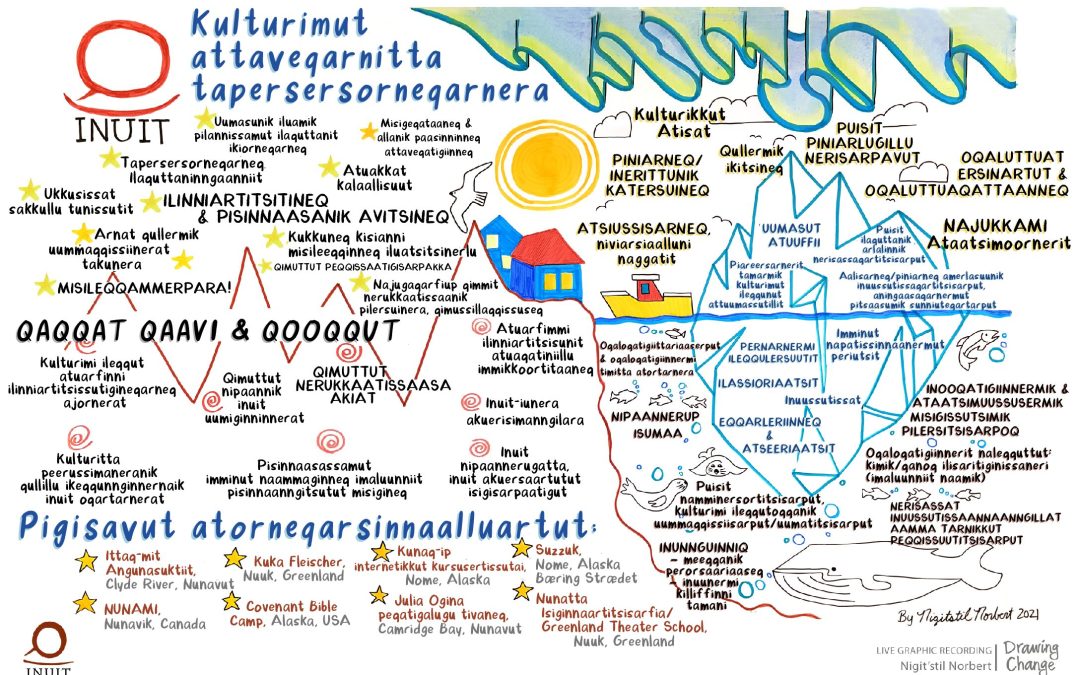 Kulturimut
attaveqarnitta
tapersersorneqarnera
INUIT
Uumasunik iluamik
pilannissamut ilaquttanit
ikiorneqarneq
Misigeqataaneq &
allanik paasinninneq
attaveqatigiinneq
Tapersersorneqarneq
Ilaquttaninngaanniit
Atuakkat
kalaallisuut
Ukkusissat
sakkullu tunissutit
ILINNIARTITSITINEQ
& PISINNAASANIK AVITSINEQ
Arnat qullermik
uummaqqissiinerat
takunera
Kukkuneq kisianni
misileeqqinneq iluatsitsinerlu
QIMUTTUT PEQQISSAATIGISARPAKKA
MISILEQQAMMERPARA!
Najugaqarfiup qimmit
nerukkaatissaanik
pilersuinera, qimussillaqqissuseq
QAQQAT QAAVI & QOOQQUT
Kulturimi ileqqut
atuarfinni
ilinniartitsissutigineqarneq
ajornerat
Qimuttut
nipaannik
inuit
uumiginninnerat
QIMUTTUT
NERUKKAATISSAASA
AKIAT
Atuarfimmi
ilinniartitsisunit
atuagatiniillu
immikkoortitaaneq
Inuit-iunera
akuerisimanngilara
Kulturitta
peerussimaneranik
qullillu ikeqqunnginnernaik
inuit oqartarnerat
Pisinnaasassamut
imminut naammaginneq imaluunniit
pisinnaanngitsutut misigineq
Inuit
nipaannerugatta,
inuit akuersaartutut
isigisarpaatigut
Pigisavut atorneqarsinnaalluartut:
Ittaq-mit
Angunasuktiit,
Clyde River, Nunavut
Kuka Fleischer,
Nuuk, Greenland
Kunaq-ip
internetikkut kursusertissutai,
Nome, Alaska
Suzzuk,
Nome, Alaska
Bæring Strædet
NUNAMI,
Nunavik, Canada
Covenant Bible
Camp, Alaska, USA
Julia Ogina
peqatigalugu tivaneq,
Camridge Bay, Nunavut
Nunatta
Isiginnaartitsisarfia/
Greenland Theater School,
Nuuk, Greenland
INUIT
Kulturikkut
Atisat
PINIARNEQ/
INERITTUNIK
KATERSUINEQ
Qullermik
ikitsineq
PUISIT
PINIARLUGILLU
NERISARPAVUT
OQALUTTUAT
ERSINARTUT &
OQALUTTUAQATTAANNEQ
ATSIUSSISARNEQ,
niviarsiaalluni
naggatit
UUMASUT
ATUUFFII
Puisit
ilaquttanik
arlalinnik
nerisassaqartitsisarput
NAJUKKAMI
Ataatsimoornerit
Piareersarnerit
tamarmik
kulturimut
ileqqunut
attuumassutillit
Aalisarneq/piniarneq amerlasuunik
inuussutissaqartitsisarput,
aningaasaqarnermut
pitsaasumik sunniuteqartarput
Oqaloqatigiittariaacerput
& oqaloqatigiinnermi
timitta atortarnera
PERNARNERMI
ILEQQULERSUUTIT
Imminut
napatissinnaanermut
periutsit
ILASSIORIAATSIT
Inuussutissat
NIPAANNERUP
ISUMAA
EQQARLERIINNEQ
&
ATSEERIAATSIT
INOOQATIGIINNERMIK &
ATAATSIMUUSSUSERMIK
MISIGISSUTSIMIK
PILERSITSISARPOQ
Oqaloqatigiinnerit naleqquttut:
kimik/qanoq ilisaritiginissaneri
(imaluunniit naamik)
Puisit
namminersortitsisarput,
kulturimi ileqqutoqqanik
uummaqqissiisarput/uumatitsisarput
NERISASSAT
INUUSSUTISSAANNAANNGILLAT
AAMMA TARNIKKUT
PEQQISSUUTITSISARPUT
INUNNGUINNIQ
- meeqqanik
perorsaariaaseq
- inuunermi
killiffinni
tamani
By Nigitstil Norbert 2021
LIVE GRAPHIC RECORDING
Nigit'stil Norbert
Drawing
Change